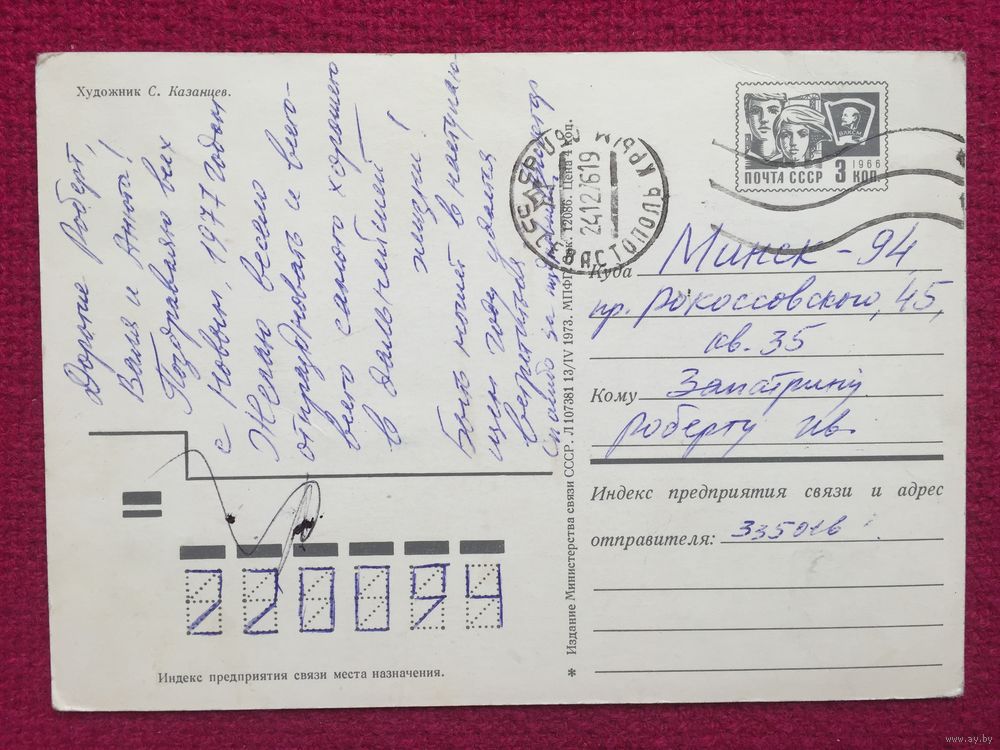 Художник С. Казанцев.
Дорогие Роберт,
Валя и Анюта!
Поздравляю всех
с Новым, 1977 годом
Желаю весело
отпраздновать и все-
всего самого хорошего
в дальнейшем!
Быть может в наступаю-
щем году удастся
встретиться
Спасибо за
ПОЧТА СССР
1966
3 КОП
ВЛКСМ
СЕВАСТОПОЛЬ КРЫМ
24127619
Куда Минск-94
пр. Рокоссовского, 45,
кв. 35
Кому Запатрину
Роберту Ив.
Индекс предприятия связи и адрес
отправителя:
220094
Индекс предприятия связи места назначения.
* Издание Министерства связи СССР. Л 107381 13/IV 1973. МПФГ. Зак. 12086. Цена 4 коп.
www.ay.by